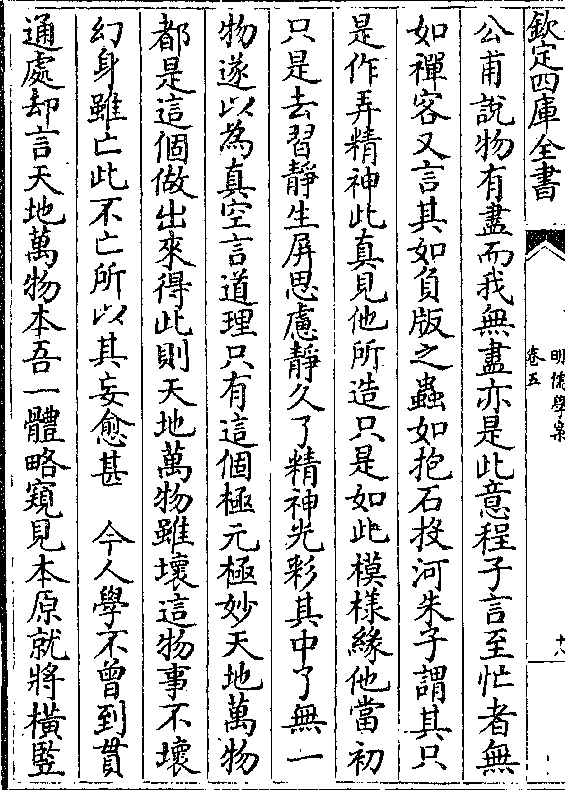 欽定四庫全書
明儒學案
卷五
十八
公甫說物有盡而我無盡亦是此意程子言至忙者無
如禪客又言其如負版之蟲如抱石投河朱子謂其只
是作弄精神此真見他所造只是如此模樣緣他當初
只是去習靜生屏思慮靜久了精神光彩其中了無一
物遂以為真空言道理只有這個極元極妙天地萬物
都是這個做出來得此則天地萬物雖壞這物事不壞
幻身雖亡此不亡所以其妄愈甚　今人學不曾到貫
通處却言天地萬物本吾一體略窺見本原就將橫豎